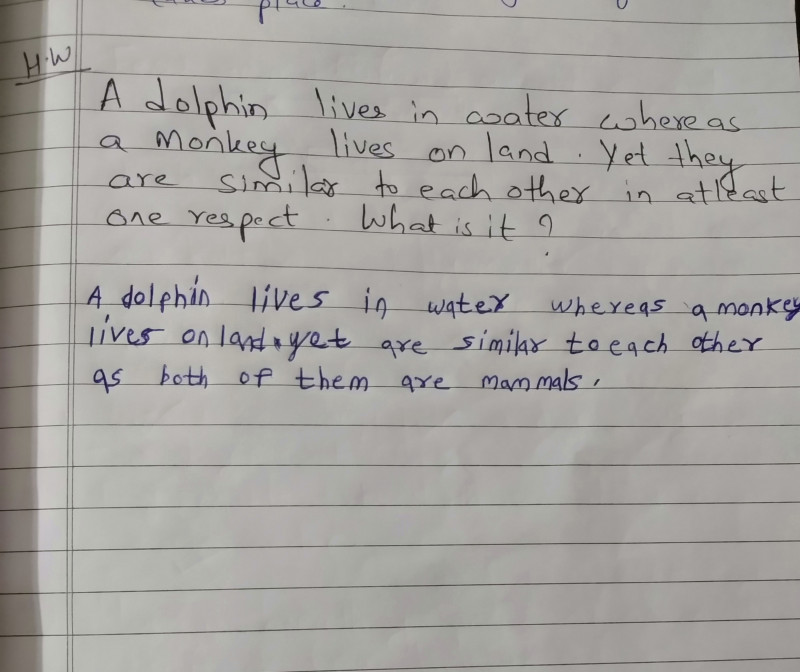 place.
H.W
A dolphin lives in water whereas
a Monkey lives on land. Yet they
are similar to each other in atleast
one respect. What is it?
A dolphin lives in water whereas a monkey
lives on land. yet are similar to each other
as both of them are mammals.